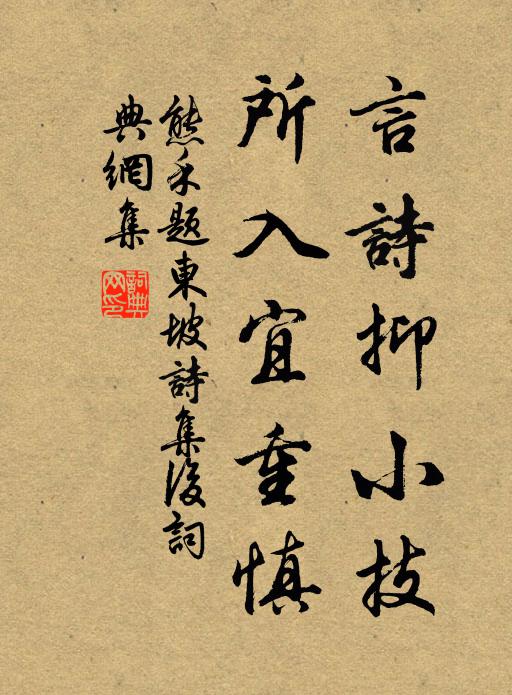 言詩抑小技
所入宜重慎
熊禾題東坡詩集後詞
典網集
詞典
网印